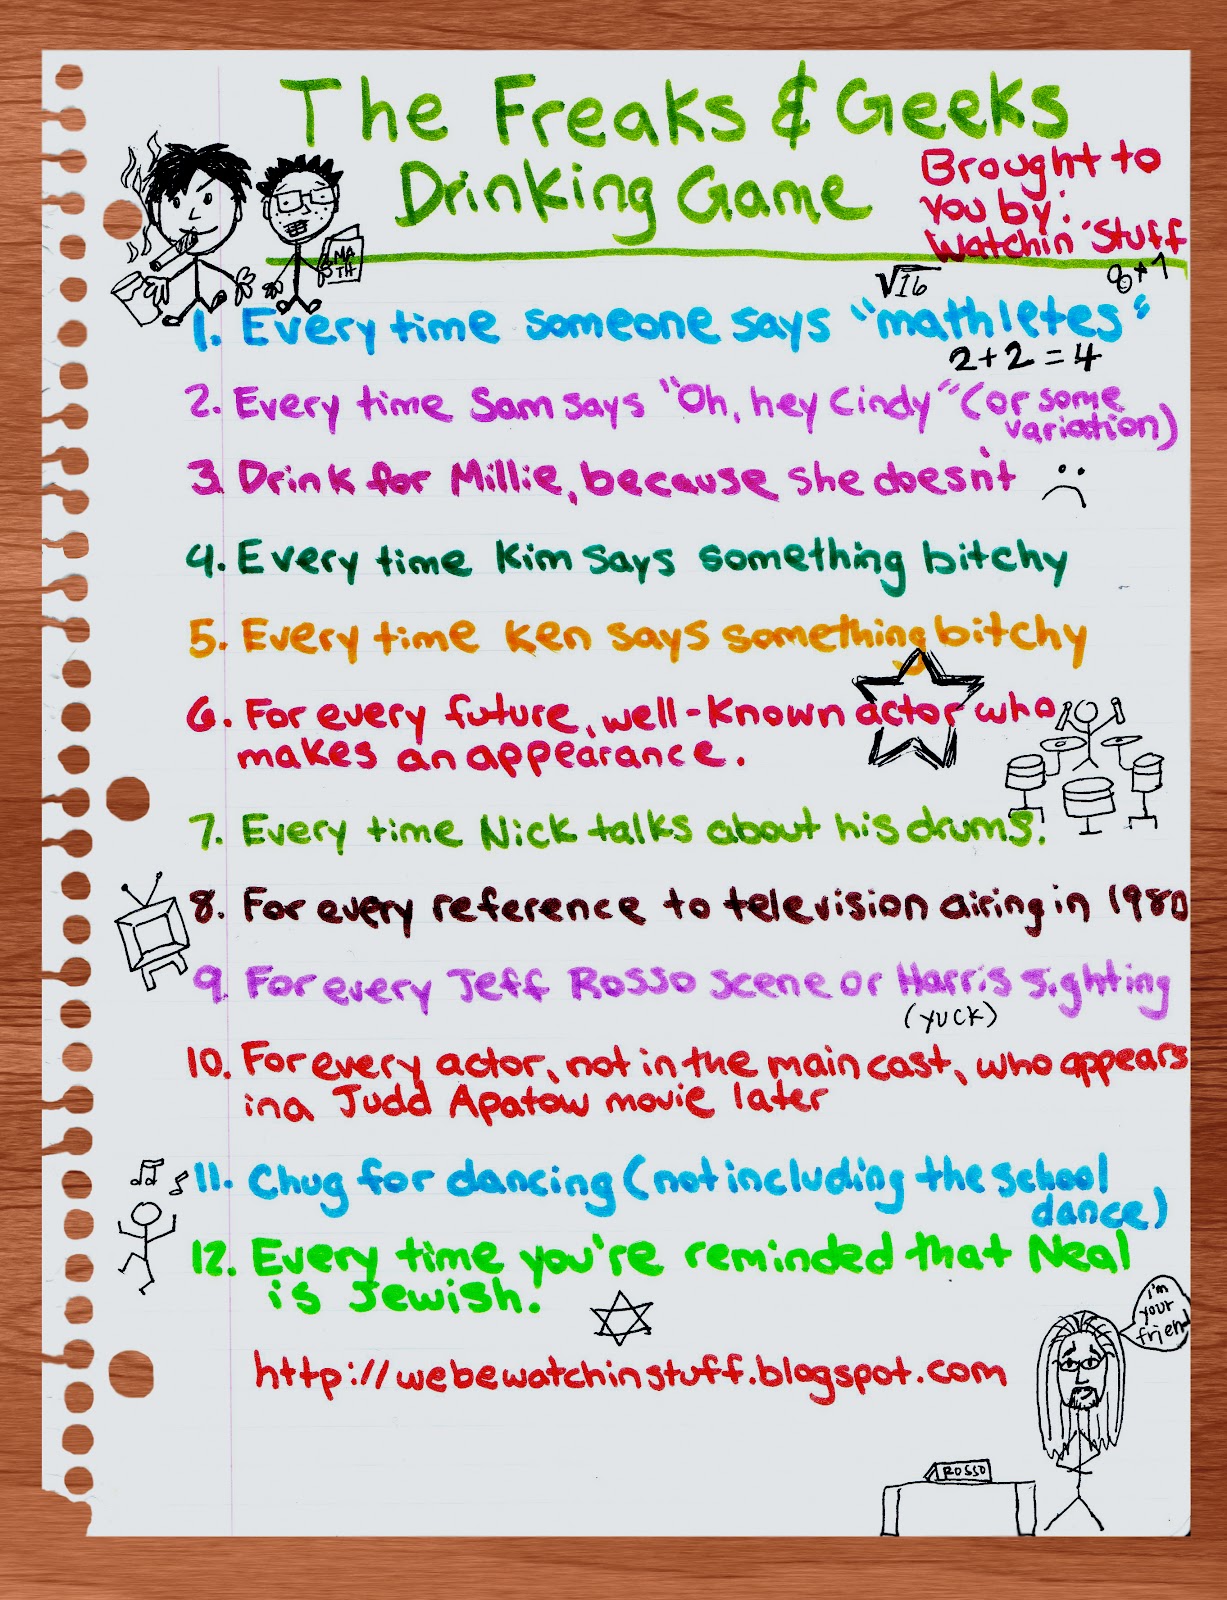 The Freaks & Geeks
Drinking Game
Brought to
you by:
Watchin' Stuff
MA
TH
√16
8*7
1. Every time someone says "mathletes"
2+2=4
2. Every time Sam says "Oh, hey Cindy" (or some
variation)
3. Drink for Millie, because she doesn't
4. Every time Kim says something bitchy
5. Every time Ken says something bitchy
6. For every future, well-known actor who
makes an appearance.
7. Every time Nick talks about his drums.
8. For every reference to television airing in 1980
9. For every Jeff Rosso scene or Harris sighting
(YUCK)
10. For every actor, not in the main cast, who appears
in a Judd Apatow movie later
11. Chug for dancing (not including the school
dance)
12. Every time you're reminded that Neal
is Jewish.
I'm
your
friend
http://webewatchinstuff.blogspot.com
ROSSO